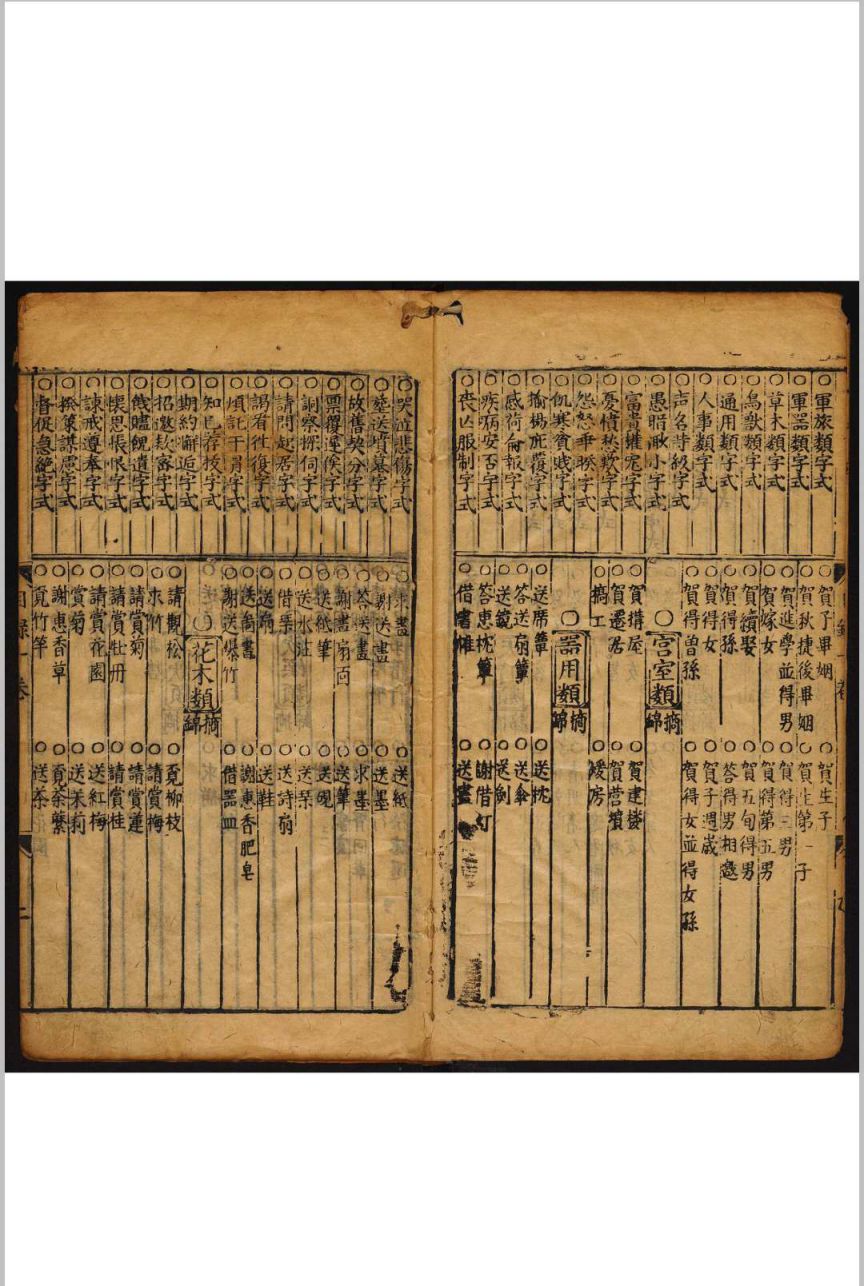 軍旅類字式
軍器類字式
草木類字式
鳥獸類字式
通用類字式
人事類字式
声名時級字式
愚暗渺小字式
富貴攉寃字式
憂憤愁歎字式
怨怒乖睽字式
飢寒貧賎字式
揄揚庇覆字式
感荷俞報字式
疾病安否字式
丧凶服制字式
賀子畢姻
賀生子
賀秋捷後畢姻
賀生第一子
賀進學並得男
賀得三男
賀嫁女
賀得第五男
賀續娶
賀五旬得男
賀得孫
答得男相邀
賀得女
賀子週歲
賀得曽孫
賀得女並得女孫
宫室類
摘錦
賀搆屋
賀建樓
賀遷居
賀营墳
犒工
煖房
器用類
摘錦
送席簟
送枕
答送扇簟
送傘
送鏡
送劍
答恵枕簟
謝借灯
借書帷
送畫
哭泣悲傷字式
塟送墳墓字式
故舊契分字式
票覆遲俟字式
詗察探伺字式
請問起居字式
謁看徃復字式
煩託干冐字式
知已荐拔字式
期約邂逅字式
招邀欵審字式
餞贐餽遺字式
懷思悵恨字式
諌戒遵奉字式
揆策謀慮字式
督促急絶字式
求畫
送紙
謝送畫
送墨
答送畫
求墨
謝書扇面
送筆
送紙筆
送硯
送水注
送琹
借琹
送詩扇
送扇
送鞋
送扇書
謝恵香肥皂
謝送爆竹
借器皿
花木類
摘錦
請觀松
覔柳枝
求竹
請賞梅
請賞菊
請賞蓮
請賞牡丹
請賞桂
請賞花園
送紅梅
賞菊
送茉莉
謝恵香草
覔茶蘩
覔竹笋
送茶
目錄一卷